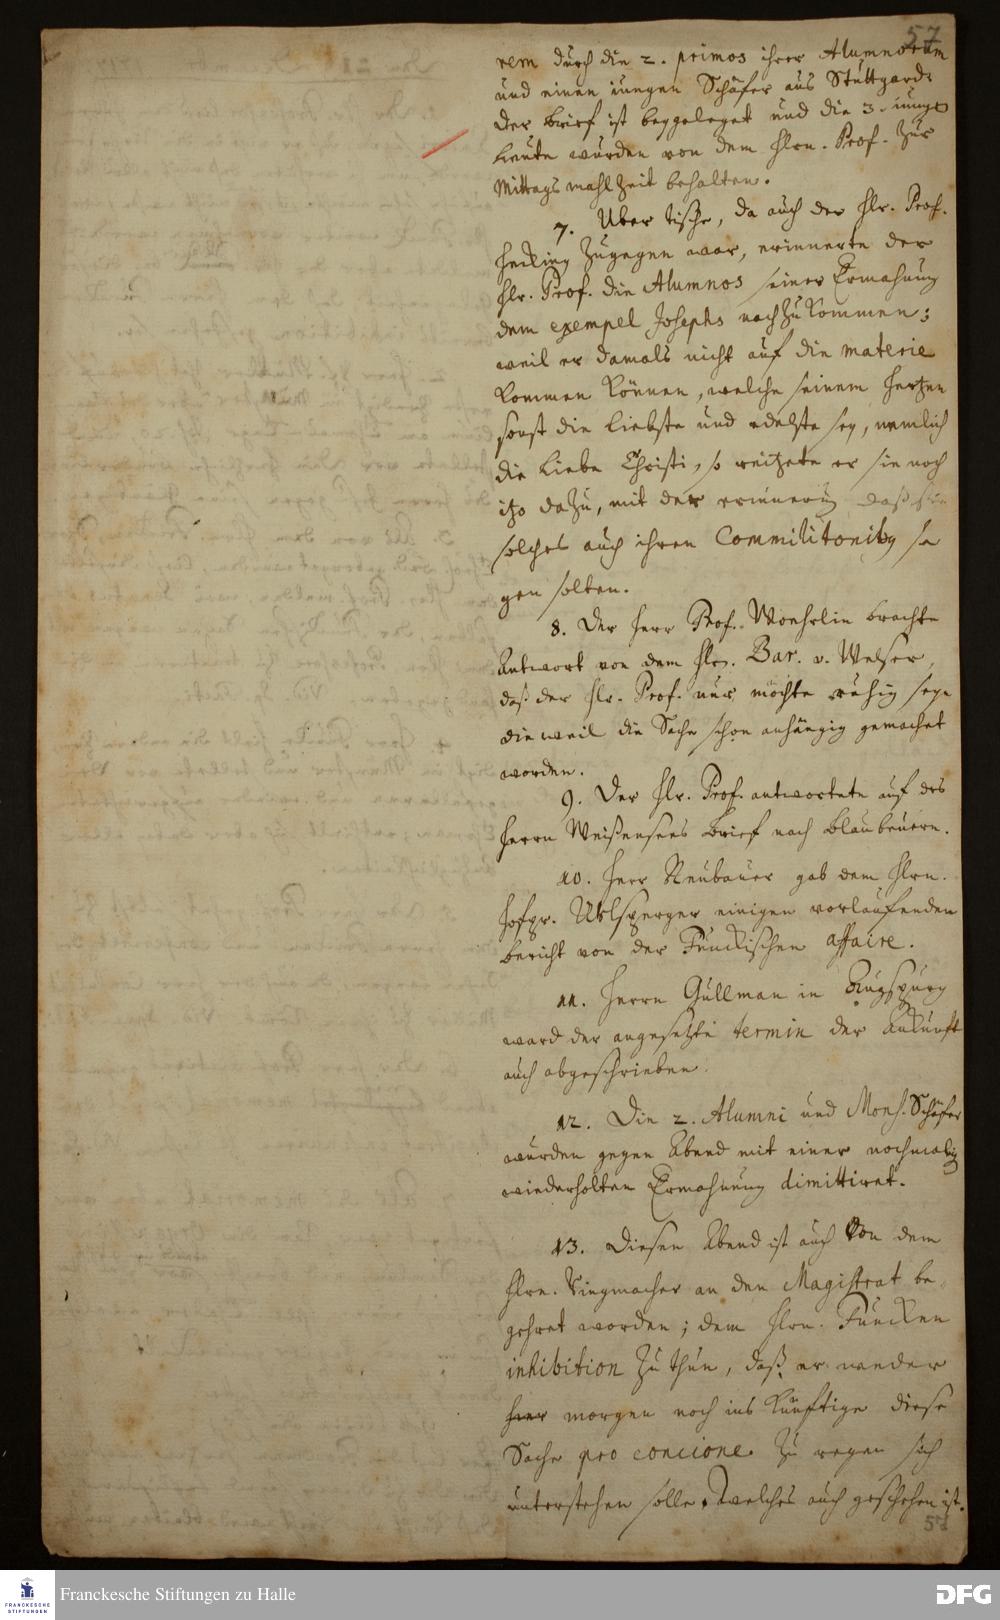 57
rem durch die 2. primos ihrer Alumnorum
und einen jungen Schäfer aus Stuttgard:
der Brief ist beygeleget und die 3. junge
Leute wurden von dem Hrn. Prof. zur
Mittagsmahlzeit behalten.
7. Uber Tische, da auch der Hr. Prof.
Hecking zugegen war, erinnerte der
Hr. Prof. die Alumnos seiner Ermahnung
dem exempel Josephs nachzukommen;
weil er damals nicht auf die materie
kommen können, welche seinem Hertzen
sonst die Liebste und edelste sey, nemlich
die Liebe Christi, so reitzete er sie noch
itzo dazu, mit der erinnerung daß sie
solches auch ihren Commilitonibus sa
gen solten.
8. Der Herr Prof. Woehrlin brachte
Antwort von dem Hrn. Bar. v. Welser,
daß der Hr. Prof. nur möchte ruhig seyn
dieweil die Sache schon anhängig gemachet
worden.
9. Der Hr. Prof. antwortete auf des
Herrn Weißensees Brief nach Blaubeuern.
10. Herr Neubauer gab dem Hrn.
Hofpr. Uhlsperger einigen vorlaufenden
bericht von der Funckischen affaire.
11. Herrn Gullman in Augspurg
ward der angesetzte termin der Ankunft
auch abgeschrieben.
12. Die 2. Alumni und Mons. Schäfer
wurden gegen Abend mit einer nochmalig
wiederholten Ermahnung dimittiret.
13. Diesen Abend ist auch von dem
Hrn. Ringmacher an den Magistrat be-
gehret worden; dem Hrn. Funcken
inhibition zu thun, daß er weder
hier morgen noch ins künftige diese
Sache pro concione zu regen sich
unterstehen solle. Welches auch geschehen ist.
57
Franckesche Stiftungen zu Halle
FRANCKESCHE STIFTUNGEN
DFG